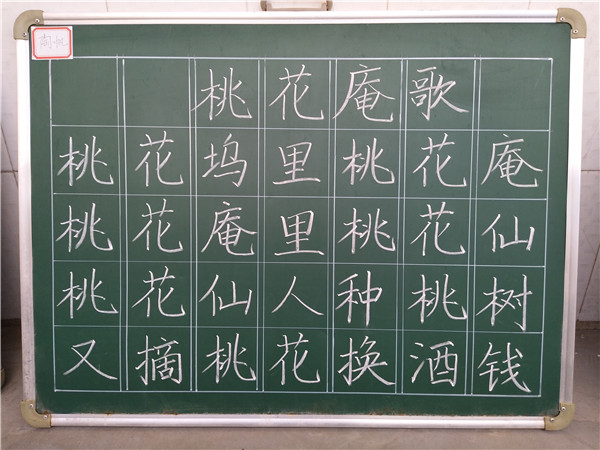 桃花庵歌
桃花坞里桃花庵
桃花庵里桃花仙
桃花仙人种桃树
又摘桃花换酒钱